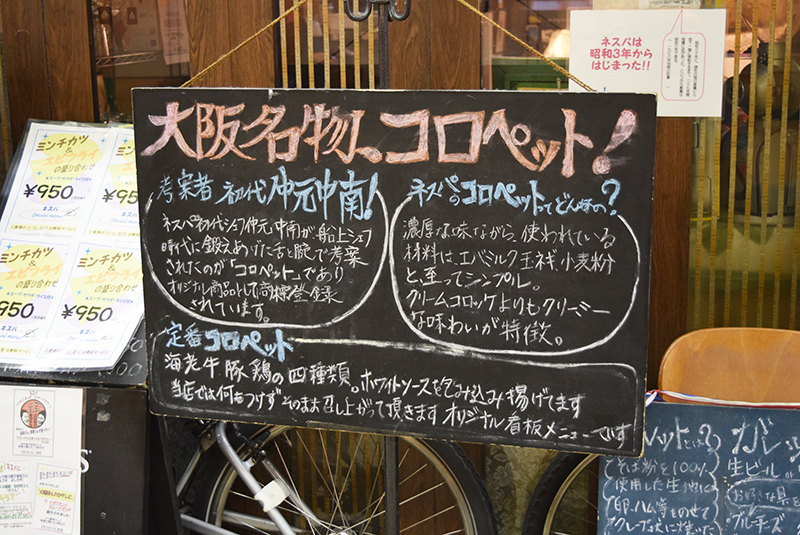 大阪名物、コロペット!
考案者 初代 仲元中南!
ネスパ初代シェフ仲元中南が、船上シェフ
時代に鍛えあげた舌と腕で考案
されたのが「コロペット」であり
オリジナル商品として商標登録
されています。
ネスパのコロペットってどんな味の?
濃厚な味ながら、使われている
材料は、エバミルク、玉ネギ、小麦粉
と、至ってシンプル。
クリームコロッケよりもクリーミー
な味わいが特徴。
定番コロペット
海老牛豚鶏の四種類。ホワイトソースを包み込み揚げてます
当店では何もつけずそのまま召し上がって頂きます オリジナル看板メニューです
ネスパは
昭和3年から
はじまった!!
ミンチカツ
&
エビフライ
の盛り合わせ
¥950
ネスパ
ミンチカツ
&
エビフライ
の盛り合わせ
¥950
ネスパ
950
950
ペットとは?
そば粉を100%
使用した生地に
卵、ハム等をのせて
クレープ状に焼いた
生ビール
お好きな具を
ブルーチーズ